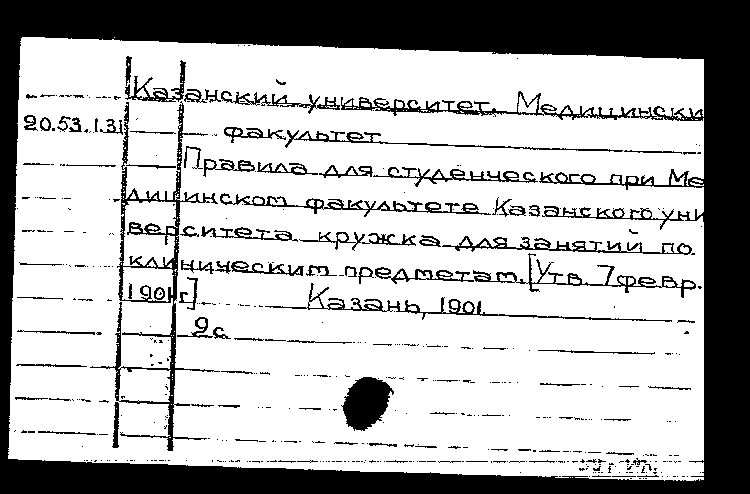 Казанский университет. Медицински
20.53.1.31 факультет.
Правила для студенческого при Ме
дицинском факультете Казанского уни
верситета кружка для занятий по
клиническим предметам. [Утв. 7 февр.
1901 г] Казань, 1901.
2 с.